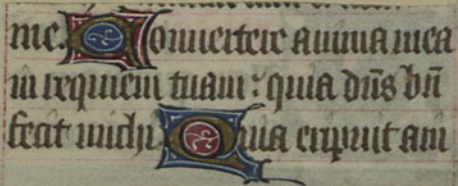 me. Conuertere anima mea
in requiem tuam : quia dn̄s bn̄
fecit michi. Quia eripuit ani